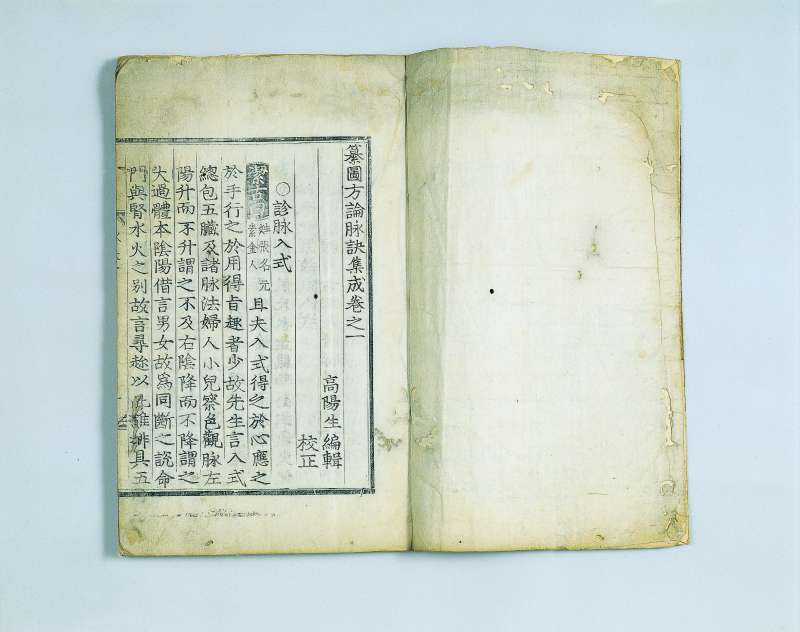 纂圖方論脉訣集成卷之一
高陽生編輯
校正
○診脉入式
潔古曰姓張名元素金人且夫入式得之於心應之
於手行之於用得旨趣者少故先生言入式
總包五臟及諸脉法婦人小兒察色觀脉左
陽升而不升謂之不及右陰降而不降謂之
大過體本陰陽偕言男女故爲同斷之說命
門與腎水火之别故言尋趁以 誰排具五